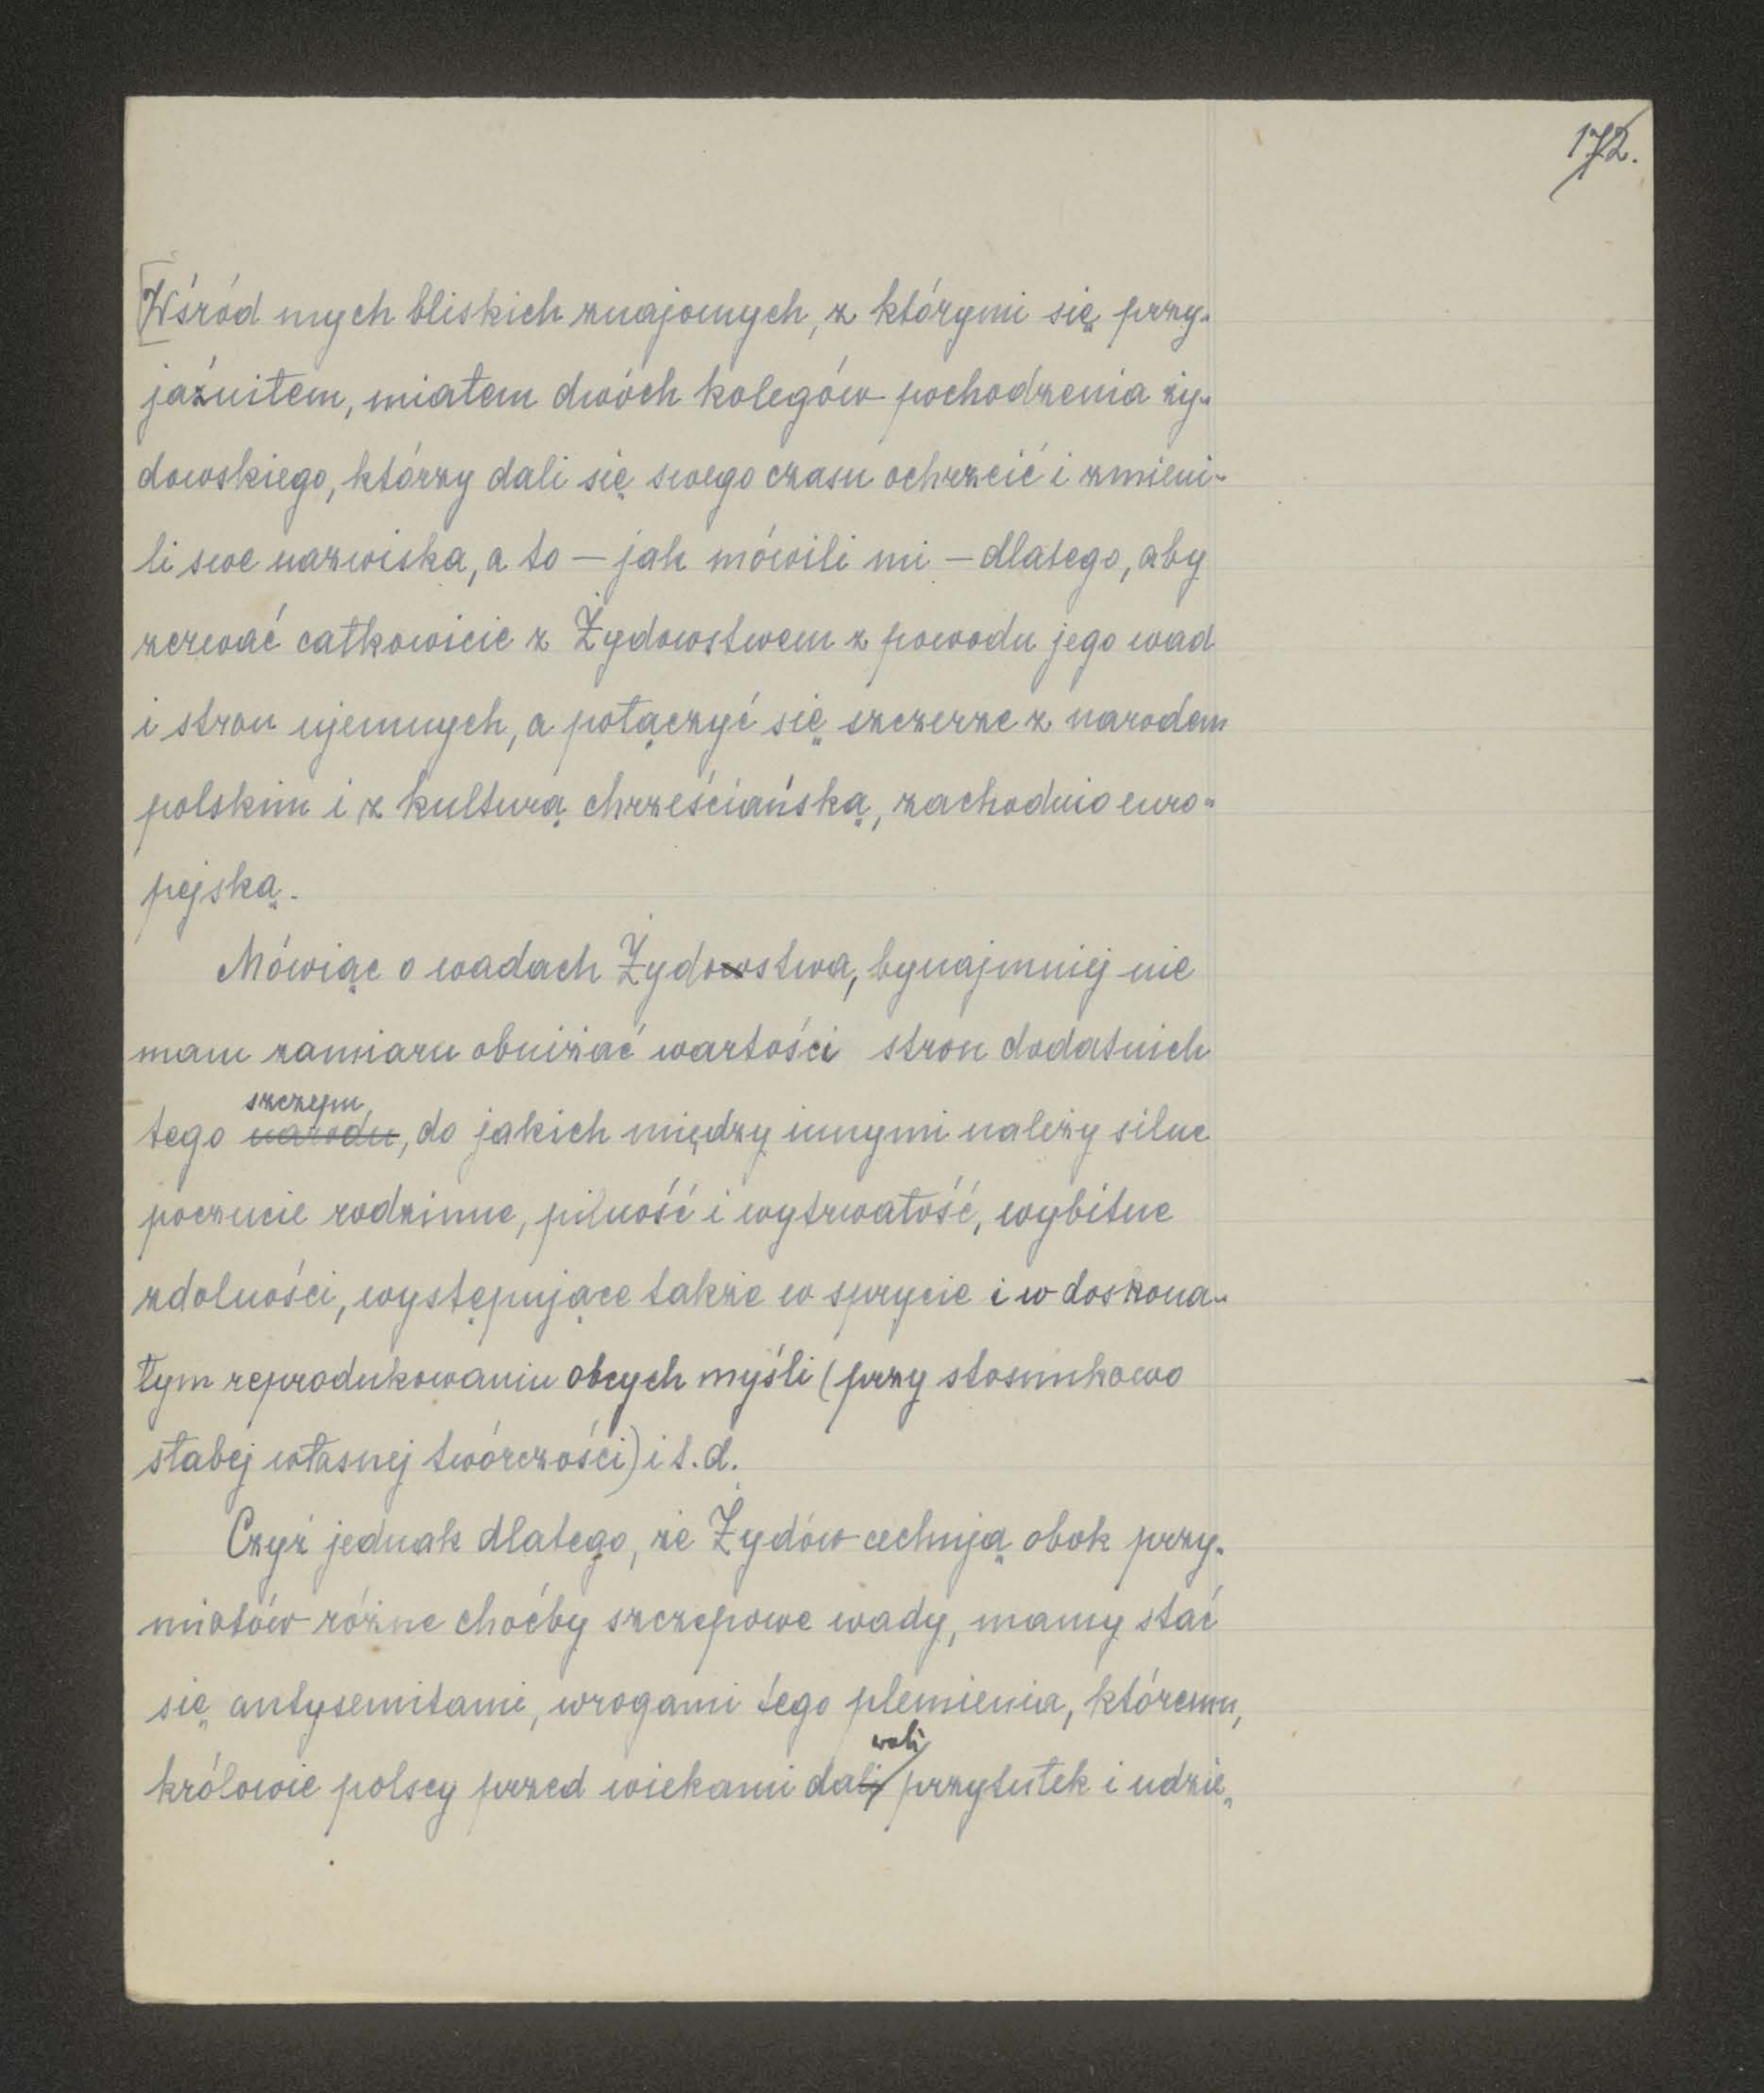 172.
[Wśród mych bliskich znajomych, z którymi się przy-
jaźniłem, miałem dwóch kolegów pochodzenia ży-
dowskiego, którzy dali się swego czasu ochrzcić i zmieni-
li swe nazwiska, a to — jak mówili mi — dlatego, aby
zerwać całkowicie z Żydowstwem z powodu jego wad
i stron ujemnych, a połączyć się szczerze z narodem
polskim i z kulturą chrześciańską, zachodnio euro-
pejską.
Mówiąc o wadach Żydowstwa, bynajmniej nie
mam zamiaru obniżać wartości stron dodatnich
szczepu
tego narodu, do jakich między innymi należy silne
poczucie rodzinne, pilność i wytrwałość, wybitne
zdolności, występujące także w sprycie i w doskona-
łym reprodukowaniu obcych myśli (przy stosunkowo
słabej własnej twórczości) i t. d.
Czyż jednak dlatego, że Żydów cechują obok przy-
miotów różne choćby szczepowe wady, mamy stać
się antysemitami, wrogami tego plemienia, któremu,
wali
królowie polscy przed wiekami dali przytułek i udzie-